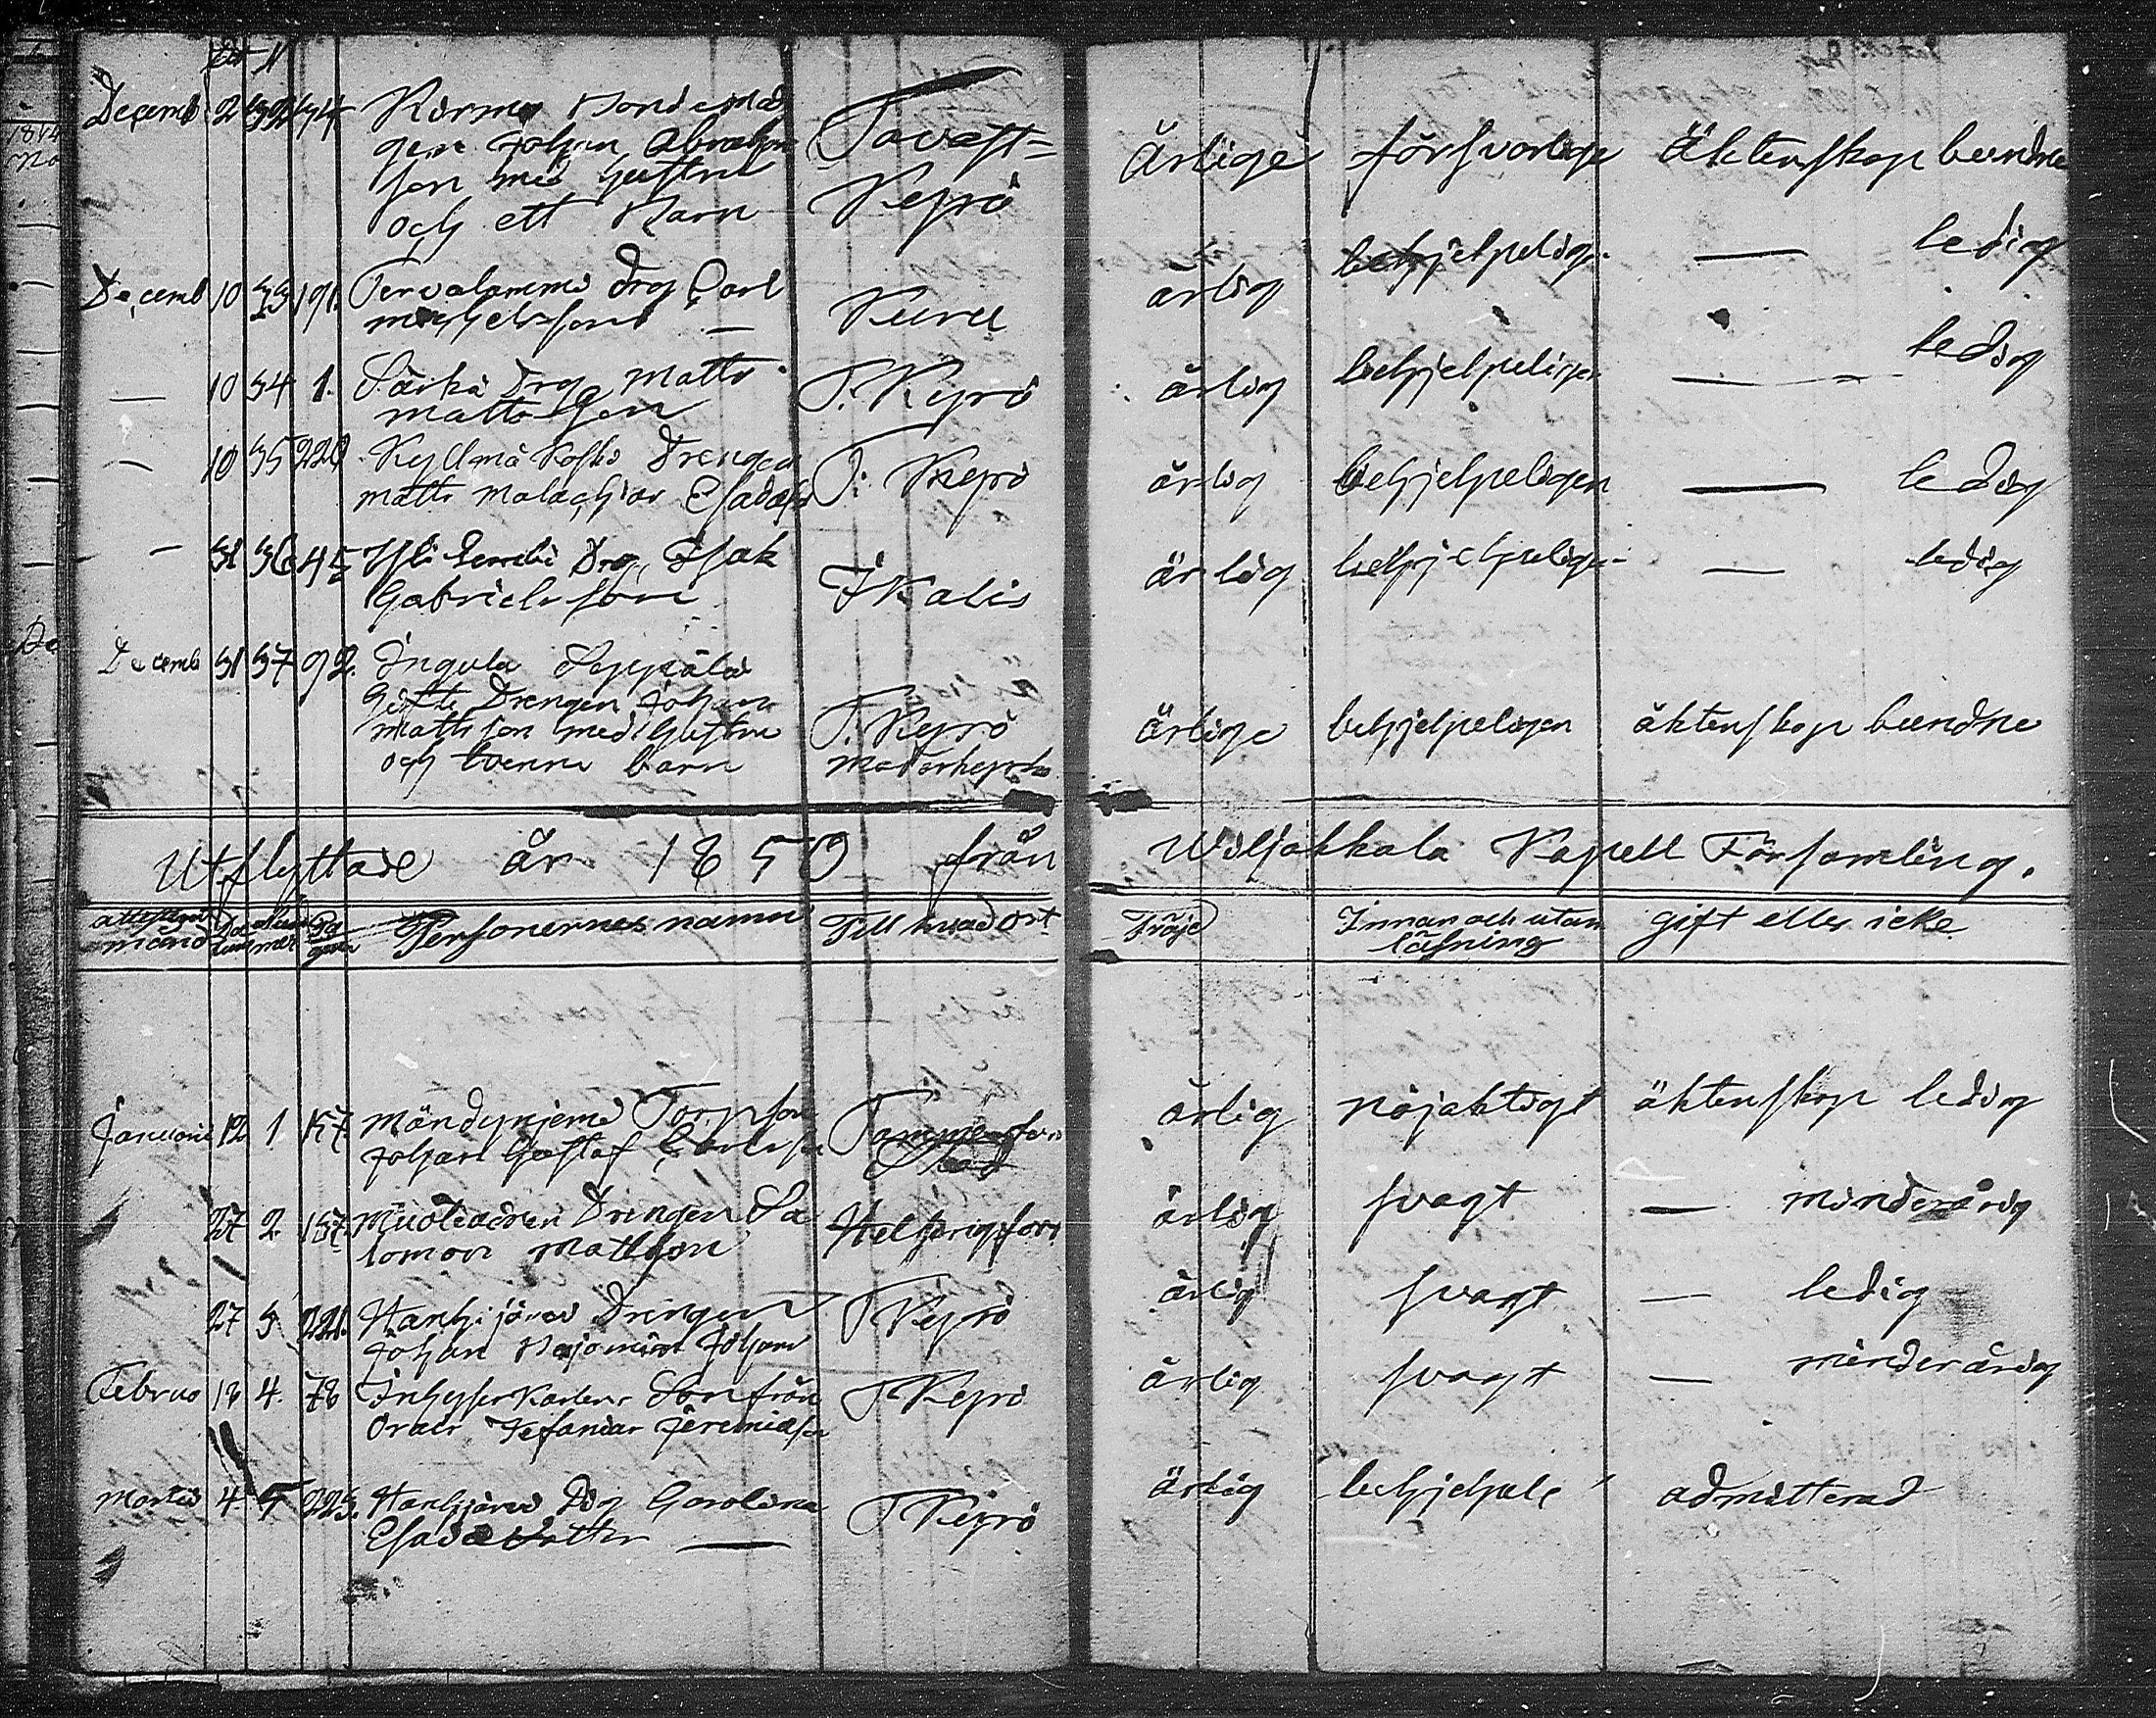 Decemb 2 32 44 Kirmu Bonde måg
gen Johan Abraham
son med hustru
och ett Barn
Tavast=
Kyrö
ärlige försvarlige äktenskap bundne
Decemb 10 33 191. Tervalammi drg Carl
michelsson —
Kuru
ärlig behjelpelige — ledig
— 10 34 1. Särkä Drg Matts
mattsson
T. Kyrö
ärlig behjelpeligen — ledig
— 10 35 220 Kyllmä Koski Drengen
matts malachias Esaiass
T. Kyrö
ärlig behjelpeligen — ledig
— 31 36 45 Drg Isak
Gabrielsson
Ikalis
ärlig behjelpeligen — ledig
Decemb 31 37 92. Ingula Seppälä
Gifte Drengen Johan
mattsson med hustru
och tvenne barn
T. Kyrö
moderkyrka
ärlige behjelpeligen äktenskap bundne
Utflyttade år 1850 från Wiljakkala Kapell Församling.
månd Personernes namn Till hvad ort Fräjd Innan och utan
läsning
gift eller icke
Januarii 12 1 157 Torpson
Johan Gustaf Carlsson
Tammerfors
Stad
ärlig nöjaktigt äktenskap ledig
27 2. 157. Drengen Sa
lomon Mattsson
Helsingfors
ärlig svagt — minderårig
27 3 221. Hanhijärvi Drengen
Johan Benjamin Johans
T Kyrö
ärlig svagt — ledig
Februa 18 4. 78 Inhyses Karlens Son från
Zefanias Jeremiasson
T Kyrö
ärlig svagt — minderårig
Martii 4 5 223. Hanhijärvi Pig Carolina
Esaiædotter —
T Kyrö
ärlig behjelpel admitterad